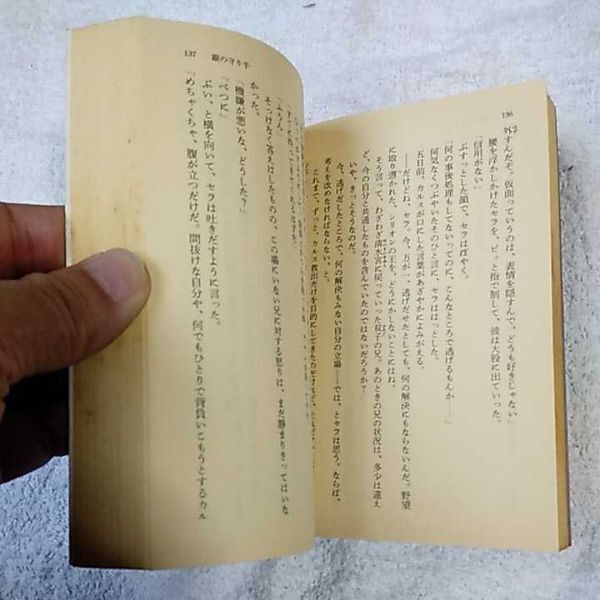 136
外すんだぞ。仮面っていうのは、表情を隠すんで、どうも好きじゃない」
腰を浮かしかけたセラを、ピッと指で制して、彼は大股に出ていった。
「信用がない」
ぶすっとした顔で、セラはぼやく。
「何の事後処理もしてないってのに、こんなところで逃げるもんか――」
何気なくつぶやいたそのひと言に、セラははっとした。
五日前、カルスが口にした言葉があざやかによみがえる。
――だけどね、セラ。今、万が一、逃げだせたとしても、何の解決にもならないんだ。野望
に取り憑かれた、シリオンの王を、どうにかしないことにはね。
そう言って、わざわざ清水宮に戻っていった双子の兄。あのときの兄の状況は、多少は違え
ど、今の自分と共通したものを含んでいたのではないだろうか？
いや、きっとそうなのだ。
今、逃げだしたところで、何の解決もみない自分の立場――では、とセラは思う。ならば、
考えを改めなければならない、と。
これまで、ずっと、カルス救出だけを目的にしてきた
137 銀の守り手
「ふうん」
そっけなく答えはしたものの、この場にいない兄に対する怒りは、まだ静まりきってはいな
かった。
「機嫌が悪いな、どうした？」
「べつに」
ぷい、と横を向いて、セラは吐きだすように言った。
「めちゃくちゃ、腹が立つだけだ。間抜けな自分や、何でもひとりで背負いこもうとするカル